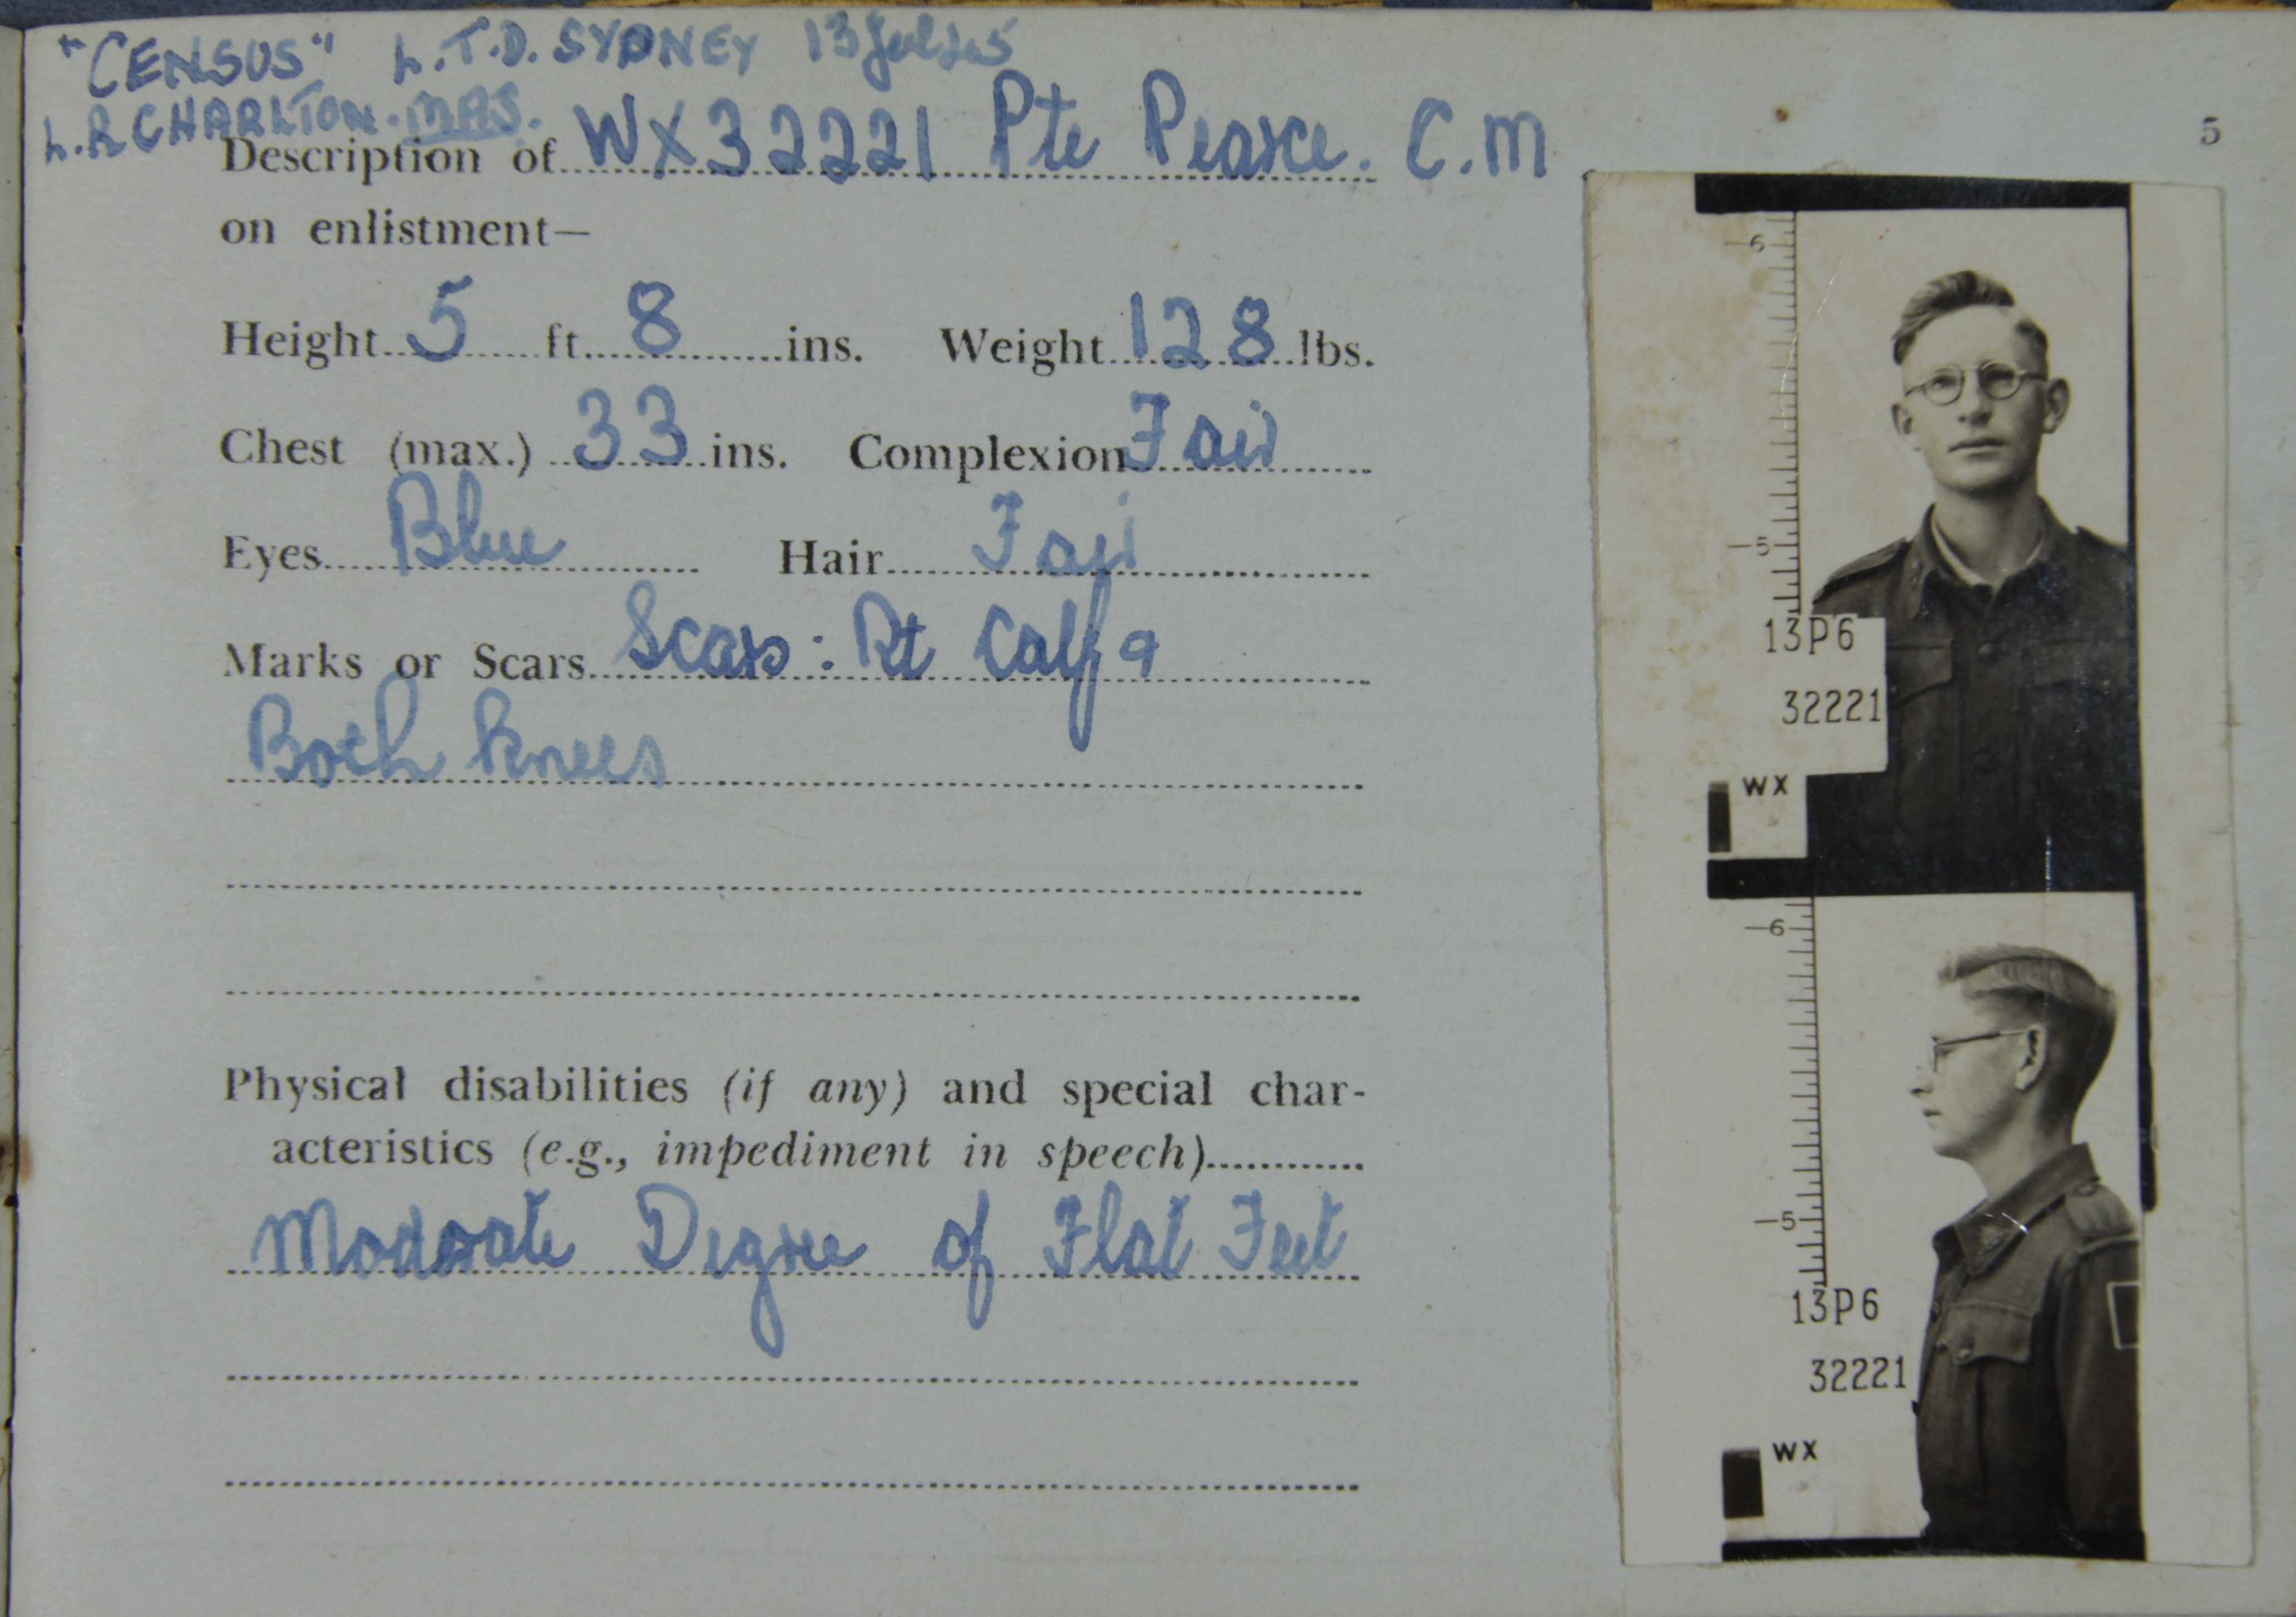 "CENSUS" L.T.D. SYDNEY 13 Jul 45
L.R CHARLTON.
5
Description of WX32221 Pte Pearce. C.M
on enlistment—
Height 5 ft. 8 ins. Weight 128 lbs.
Chest (max.) 33 ins. Complexion Fair
Eyes Blue Hair Fair
Marks or Scars Scars: Rt Calf &
Both Knees
Physical disabilities (if any) and special char-
acteristics (e.g., impediment in speech)
Moderate Degree of Flat Feet
6
5
13P6
32221
WX
6
5
13P6
32221
WX